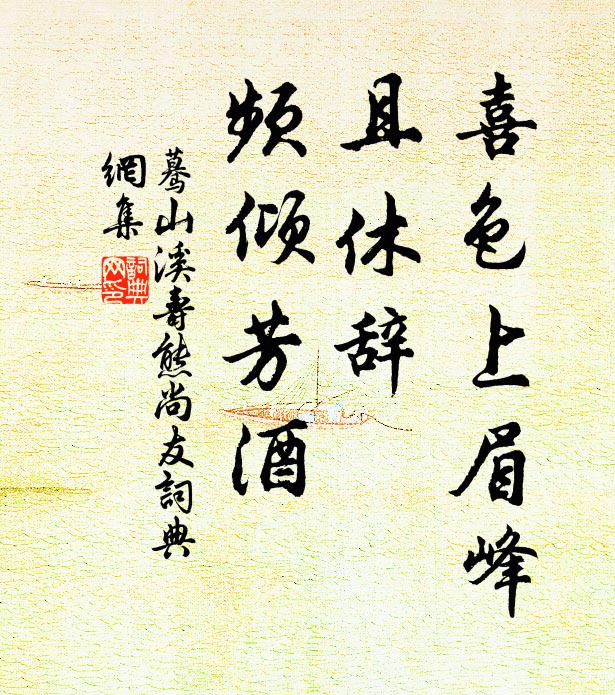 喜色上眉峰
且休辞
频倾芳酒
蓦山溪寿熊尚友詞典
網集
詞典網印